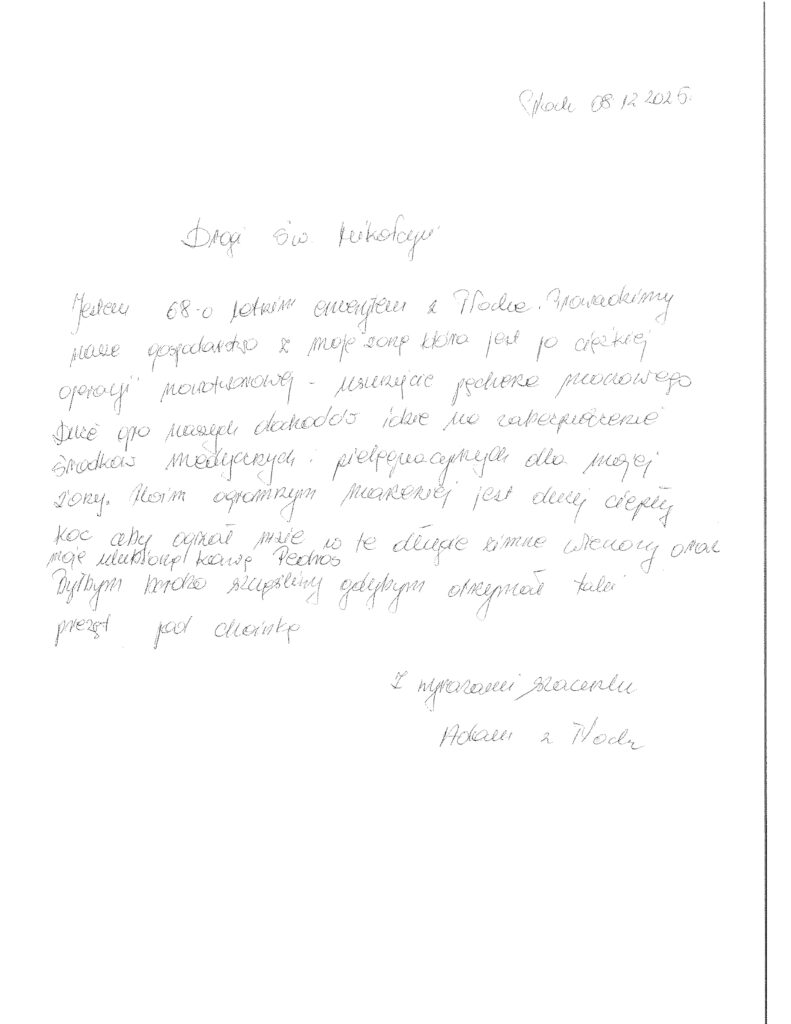 Płock 08.12.2025.
Drogi Św. Mikołaju
Jestem 68-o letnim emerytem z Płocka. Prowadzimy
nasze gospodarstwo z moją żoną która jest po ciężkiej
operacji nowotworowej - usunięcie pęcherza moczowego
Dużo naszych dochodów idzie na zabezpieczenie
środków medycznych i pielęgnacyjnych dla mojej
żony. Moim ogromnym marzeniem jest duży ciepły
koc aby ogrzał mnie w te długie zimne wieczory oraz
moje ulubioną kawę Pedros
Byłbym bardzo szczęśliwy gdybym otrzymał taki
prezęt pod choinkę
Z wyrazami szacunku
Adam z Płocka